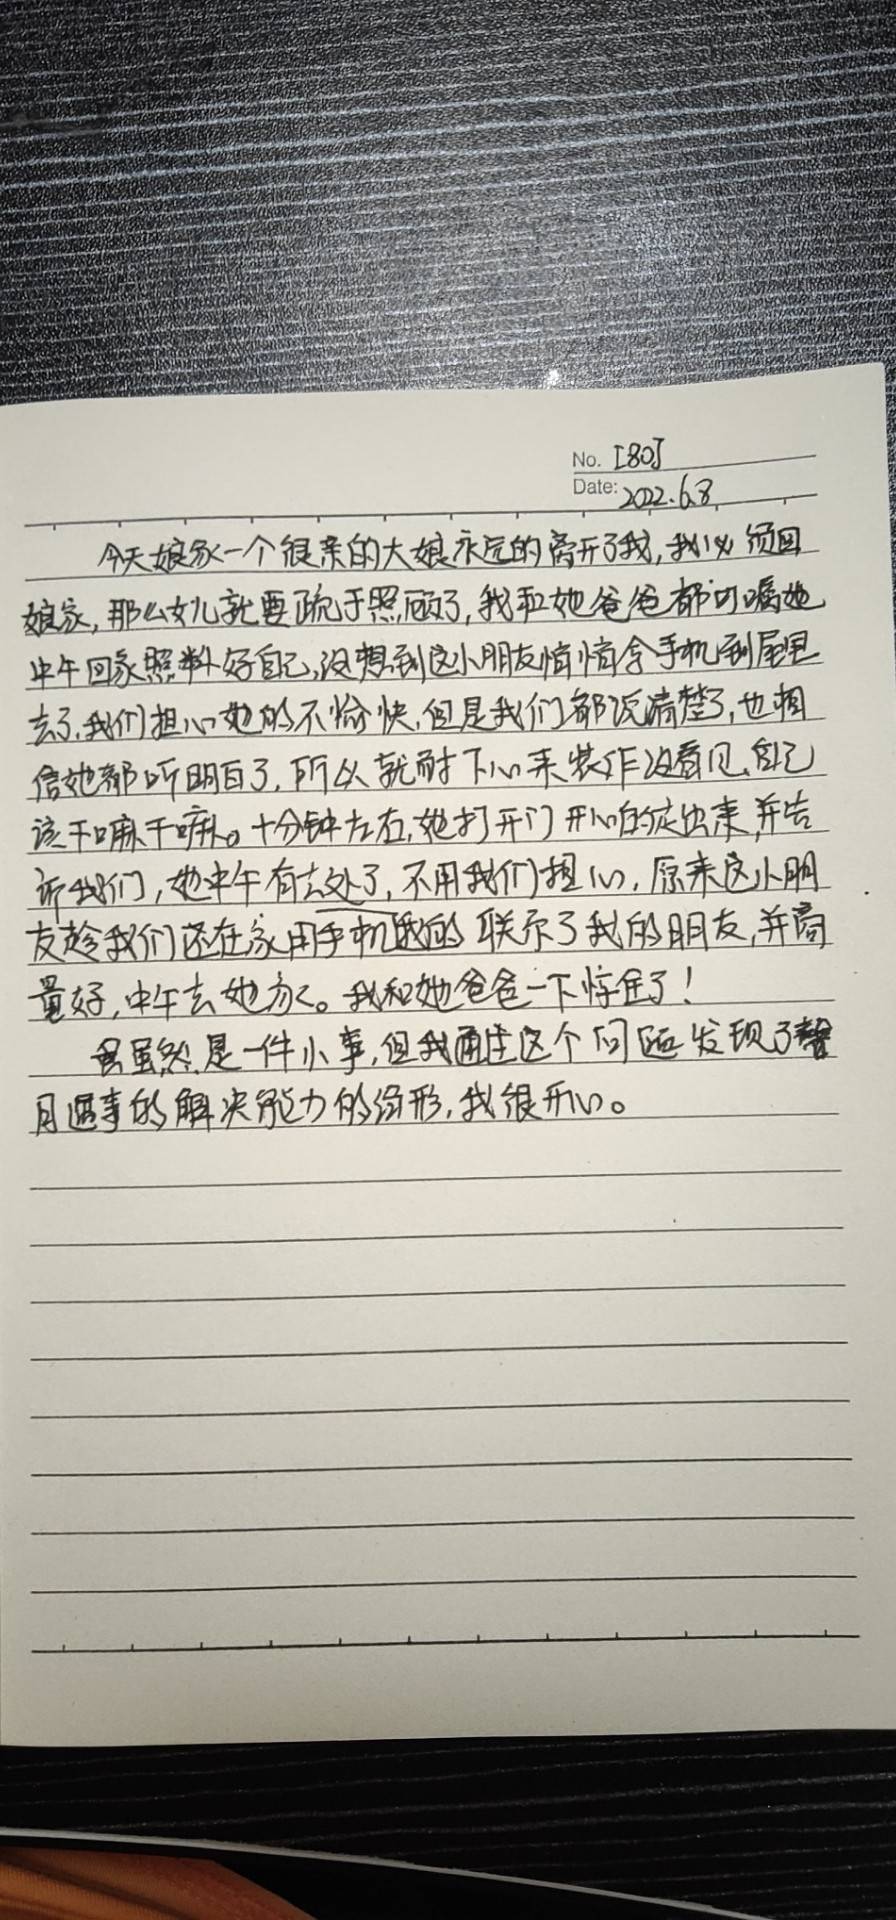 No. [80]
Date: 2022.6.8
今天娘家一个很亲的大娘永远的离开了我,我必须回
娘家,那么女儿就要疏于照顾了,我和她爸爸都叮嘱她
中午回家照料好自己,没想到这小朋友悄悄拿手机到屋里
去了,我们担心她的不愉快,但是我们都说清楚了,也相
信她都听明白了,所以就耐下心来装作没看见,自己
该干嘛干嘛。十分钟左右,她打开门开心的走出来,并告
诉我们,她中午有去处了,不用我们担心,原来这小朋
友趁我们还在家用手机我的联系了我的朋友,并商
量好,中午去她家。我和她爸爸一下惊住了!
虽然是一件小事,但我通过这个问题发现了馨
月遇事的解决能力的,我很开心。